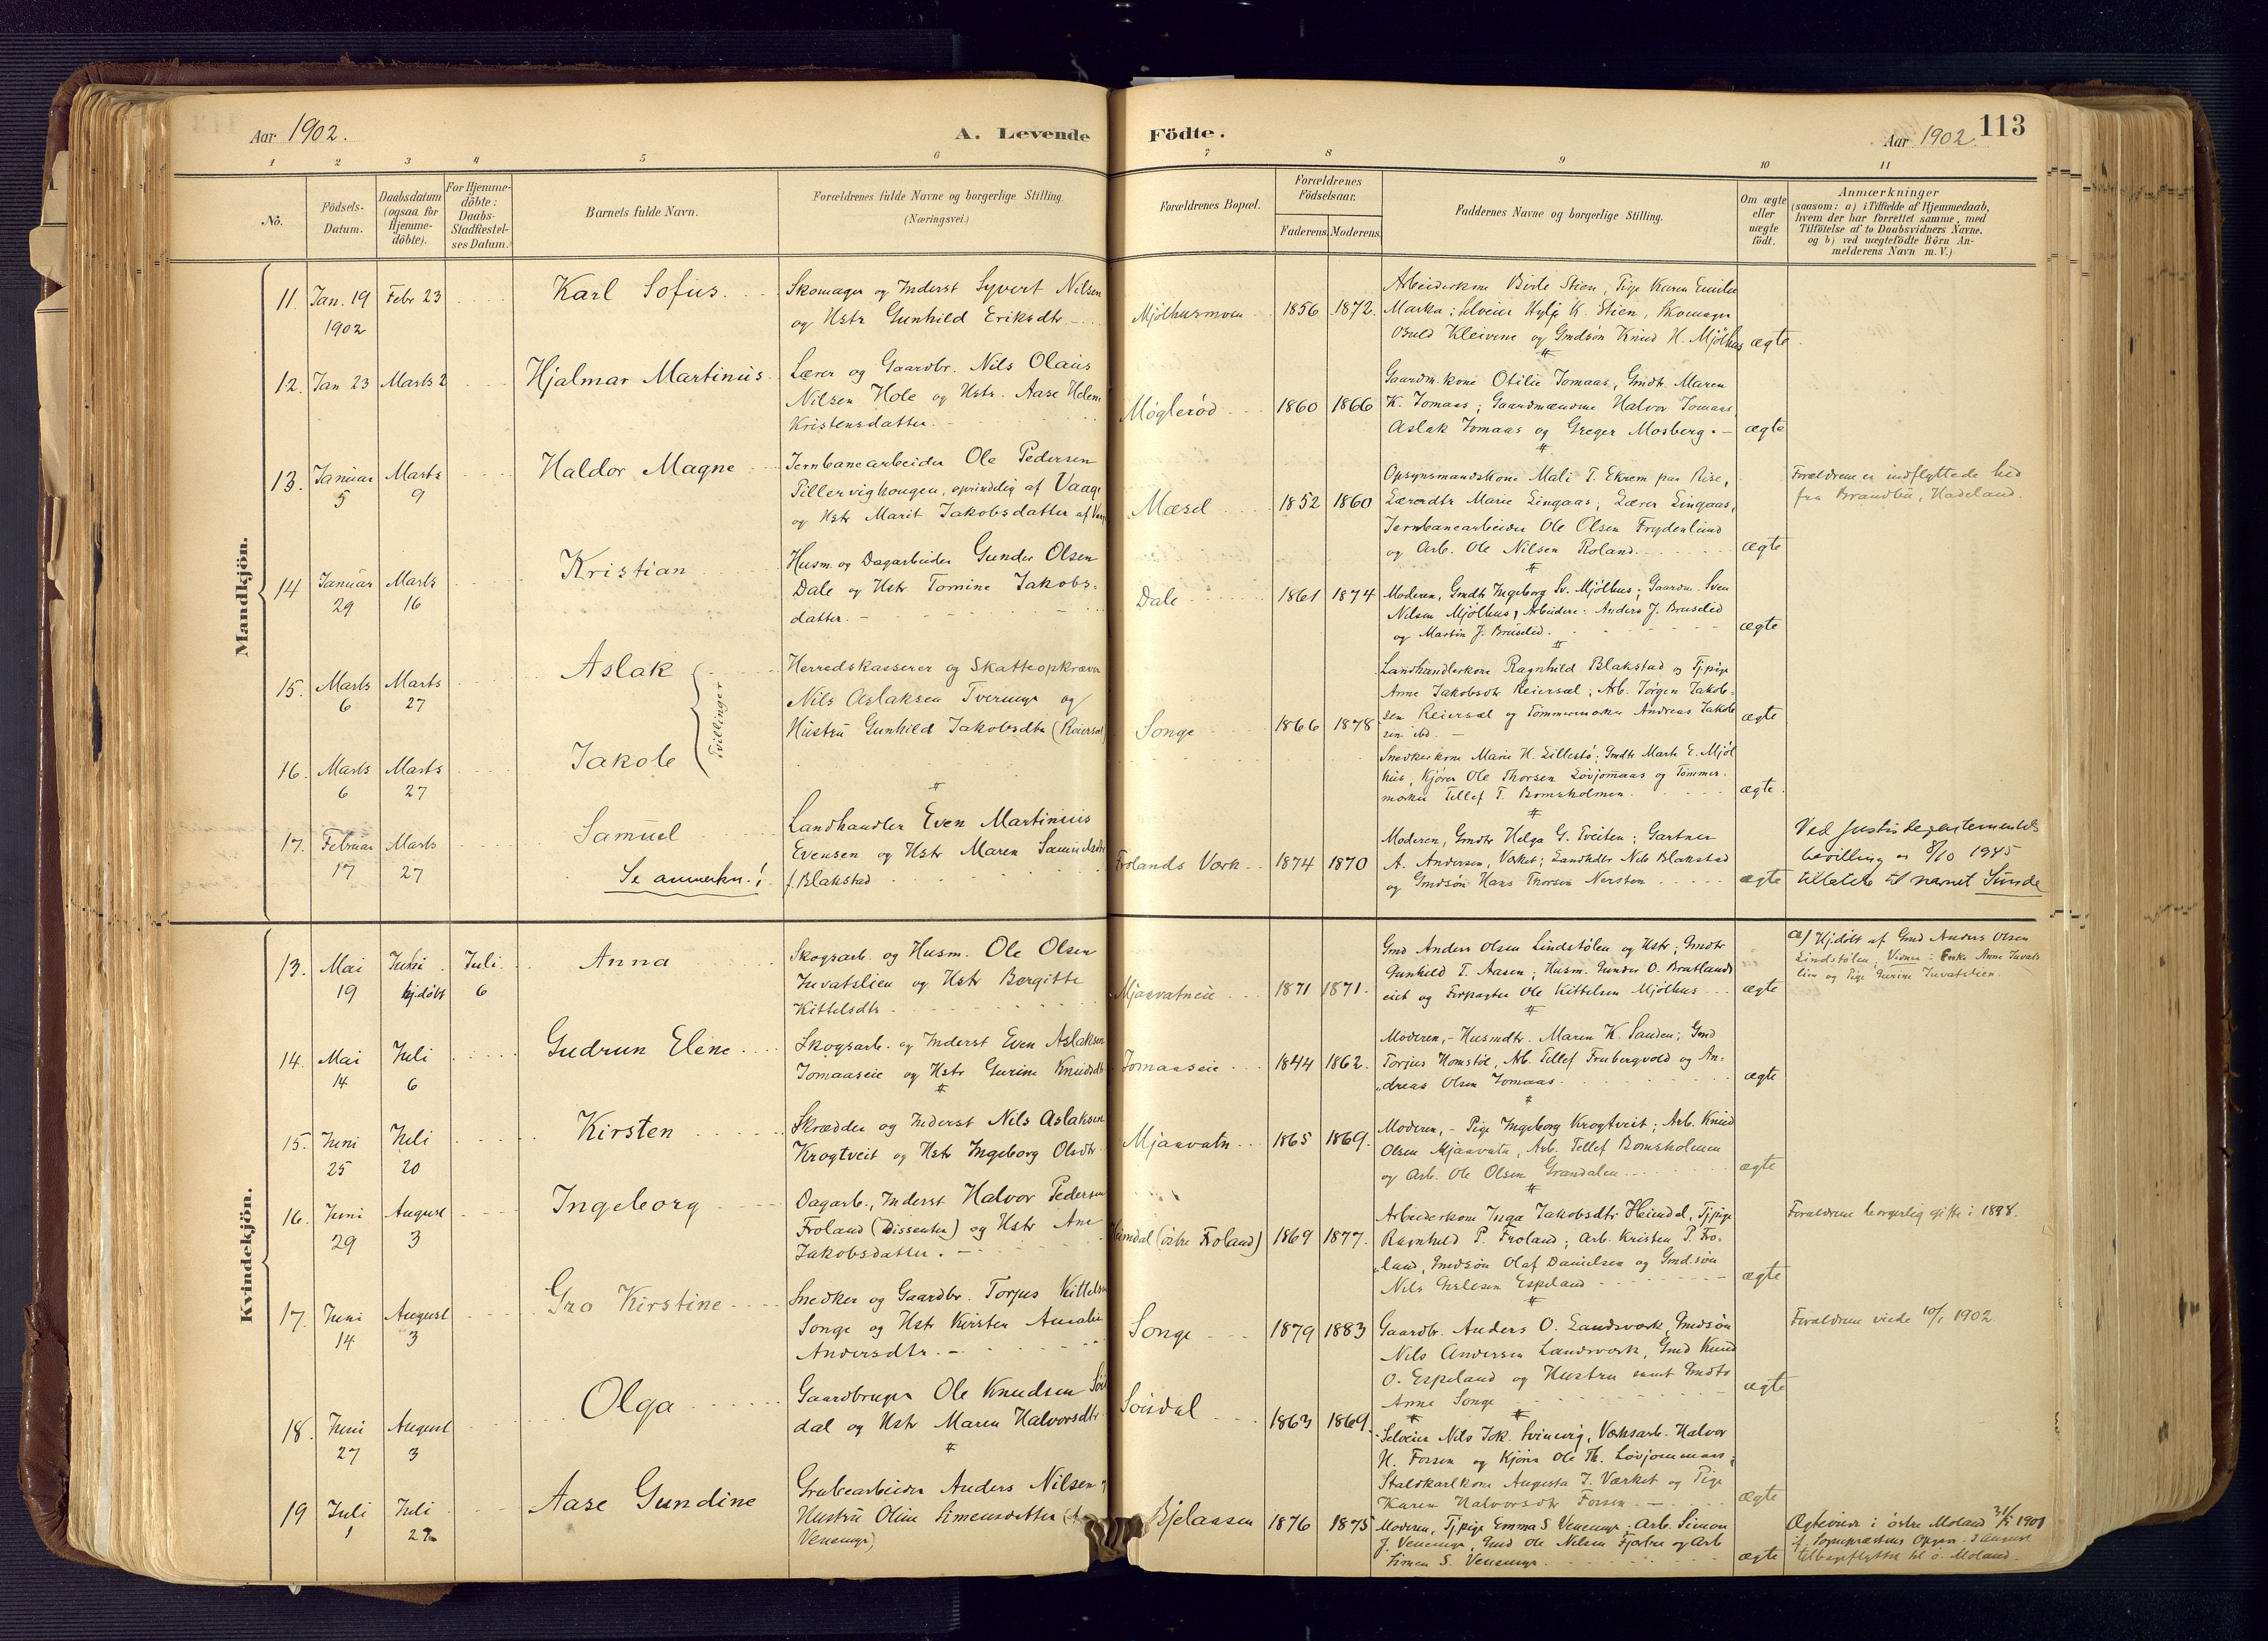 Aar 1902.
A. Levende
Födte.
Aar 1902.
113
1 2 3 4 5 6 7 8 9 10 11
No.
Födsels-
Datum.
Daabsdatum
(ogsaa for
Hjemme-
döbte).
For Hjemme-
döbte:
Daabs-
Stadfæstel-
ses Datum.
Barnets fulde Navn.
Forældrenes fulde Navne og borgerlige Stilling.
(Næringsvei.)
Forældrenes Bopæl.
Forældrenes
Födselsaar.
Faderens. Moderens.
Faddernes Navne og borgerlige Stilling.
Om ægte
eller
uægte
födt.
Anmærkninger
(saasom: a) i Tilfælde af Hjemmedaab,
hvem der har forrettet samme, med
Tilföielse af to Daabsvidners Navne.
og b) ved uægtefödte Börn An-
melderens Navn m. V.)
Mandkjön.
11. Jan. 19
1902
Febr 23
Karl Sofus.
Skomager og Inderst Syvert Nilsen
og Hstr Gunhild Eriksdtr
Mjölhusmoen
1856 1872.
Arbeiderkone Birte Stien, Pige Karen Emilie
Marka; Selveier K. Stien, Skomager
Kleivene og Gmdsön Knud H. Mjölhus
ægte
12. Jan 23
Marts 2
Hjalmar Martinus.
Lærer og Gaardbr. Nils Olaus
Nilsen Hole og Hstr. Aase Helene
Kristensdatter.
Mögleröd
1860 1866
Gaardm.kone Otilie Jomaas, Gmdtr. Maren
K. Jomaas; Gaardmændene Halvor Jomaas,
Aslak Jomaas og Greger Mosberg.
ægte
13. Januar
5
Marts
9
Haldor Magne
Jernbanearbeider Ole Pedersen
Pillervighougen, oprindelig af Vaage
og Hstr Marit Jakobsdatter af
Mæsel
1852 1860
Opsynsmandskone Mali T. Ekrem paa Rise,
Lærerdtr Marie Lingaas; Lærer Lingaas,
Jernbanearbeider Ole Olsen Frydenlund
og Arb. Ole Nilsen Roland.
ægte
Forældrene er indflyttede hid
fra Brandbu, Hadeland.
14 Januar
29
Marts
16
Kristian
Husm. og Dagarbeider Gunder Olsen
Dale og Hstr Tomine Jakobs-
datter.
Dale
1861 1874
Moderen, Gmdtr Ingeborg Sv. Mjölhus; Gaardm. Sven
Nilsen Mjölhus, Arbeidere: Anders J. Bruselid
og Martin J. Bruselid.
ægte
15. Marts
6
Marts
27
Aslak
Tvillinger
Herredskasserer og Skatteopkræver
Nils Aslaksen Tveramyr og
Hustru Gunhild Jakobsdtr (Reiersøl)
Songe
1866 1878
Landhandlerkone Ragnhild Blakstad og Tj.pige
Anne Jakobsdtr Reiersøl; Arb. Jörgen Jakob-
sen Reiersøl og Tömmermærker Andreas Jakob
sen ibd.
ægte
16. Marts
6
Marts
27
Jakob
Snedkerkone Marie H. Lillestö; Gmdtr Marte E. Mjöl
hus, Kjörer Ole Thorsen Lövjomaas og Tömmer-
mærker Tellef T. Bomsholmen.
ægte.
17. Februar
17
Marts
27
Samuel
Se anmerkn.!
Landhandler Even Martinius
Evensen og Hstr Maren Samuelsdtr
f. Blakstad
Frolands Værk
1874 1870
Moderen, Gmdtr Helga G. Tveiten; Gartner
A. Andersen, Værket; Landhdlr Nils Blakstad
og Gmdsön Hans Thorsen Nersten
ægte
Ved Justisdepartementets
bevilling av 8/10 1945
tillatelse til navnet Sunde
Kvindekjön.
13. Mai
19
Juni
hjdöbt
Juli
6
Anna
Skogsarb. og Husm. Ole Olsen
Juvatslien og Hstr Borgitte
Kittelsdtr
Mjaavatneie
1871 1871.
Gmd Anders Olsen Lindstölen og Hstr; Gmdtr
Gunhild T. Aasen; Husm. Gunder O. Bratlands
eiet og Forpagter Ole Kittelsen Mjölhus
ægte
a) Hjdöbt af Gmd Anders Olsen
Lindstölen; Vidner: Enke Anne Juvats
lien og Pige Gurine Juvatslien.
14. Mai
14
Juli
6
Gudrun Elene
Skogsarb. og Inderst Even Aslaksen
Jomaaseie og Hstr Gurine Knudsdtr
Jomaaseie
1844 1862.
Moderen, - Husmdtr. Maren K. Sanden; Gmd
Torjus Homstöl, Arb. Tellef Frubergvold og An-
dreas Olsen Jomaas.
ægte
15. Juni
25
Juli
20
Kirsten
Skrædder og Inderst Nils Aslaksen
Krogtveit og Hstr Ingeborg Olsdtr
Mjaavatn
1865 1869.
Moderen, - Pige Ingeborg Krogtveit; Arb. Knud
Olsen Mjaavatn, Arb. Tellef Bomsholmen
og Arb. Ole Olsen Grændalen
ægte
16. Juni
29
August
3
Ingeborg
Dagarb., Inderst Halvor Pedersen
Froland (Dissenter) og Hstr Ane
Jakobsdatter.
Heimdal (östre Froland)
1869 1877.
Arbeiderkone Inga Jakobsdtr Heimdal, Tj.pige
Ragnhild P. Froland; Arb. Kristen P. Fro-
land, Gmdsön Olaf Danielsen og Gmd.sön
Nils Espeland
ægte
Forældrene borgerlig gifte i 1898.
17. Juni
14
August
3
Gro Kirstine
Snedker og Gaardbr. Torjus Kittelsen
Songe og Hstr Kirsten Amalie
Andersdtr.
Songe
1879 1883
Gaardbr. Anders O. Landsværk, Gmdsön
Nils Andersen Landsværk, Gmd Knud
O. Espeland og Hustru samt Gmdtr
Anne Songe
ægte
Forældrene viede 10/1 1902
18. Juni
27
August
3
Olga
Gaardbruger Ole Knudsen Söi
dal og Hstr Maren Halvorsdtr.
Söisdal
1863 1869.
Selveier Nils Jak. Svinevig, Værksarb. Halvor
H. Forsen og Kjörer Ole Th. Lövjommaas;
Staldkarlkone Augusta J. Værket og Pige
Karen Halvorsdtr Forsen.
ægte
19 Juli
1
Juli
27
Aase Gundine
Grubearbeider Anders Nilsen
Hustru Oline Simensdatter
Venemyr)
Bjelaasen
1876 1875
Moderen, Tj.pige Emma S Venemyr; Arb. Simon
J. Venemyr, Gmd Ole Nilsen Fjærbu og Arb
Simen S. Venemyr
ægte
Ægteviede i östre Moland 31/5 1901
if. Sogneprestens Opgave. I August
tilbageflyttet til ö. Moland.